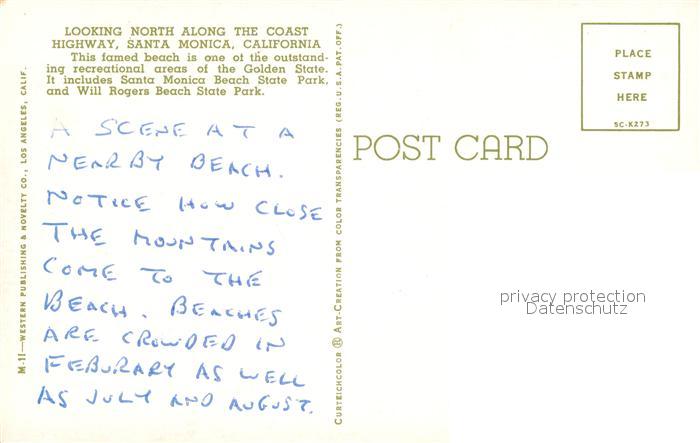 LOOKING NORTH ALONG THE COAST
HIGHWAY, SANTA MONICA, CALIFORNIA
This famed beach is one of the outstand-
ing recreational areas of the Golden State.
It includes Santa Monica Beach State Park,
and Will Rogers Beach State Park.
A SCENE AT A
NEARBY BEACH.
NOTICE HOW CLOSE
THE MOUNTAINS
COME TO THE
BEACH. BEACHES
ARE CROWDED IN
FEBURARY AS WELL
AS JULY AND AUGUST.
M-11—WESTERN PUBLISHING & NOVELTY CO., LOS ANGELES, CALIF.
CURTEICHCOLOR ® ART-CREATION FROM COLOR TRANSPARENCIES (REG. U.S.A. PAT. OFF.)
POST CARD
PLACE
STAMP
HERE
5C-K273
privacy protection
Datenschutz